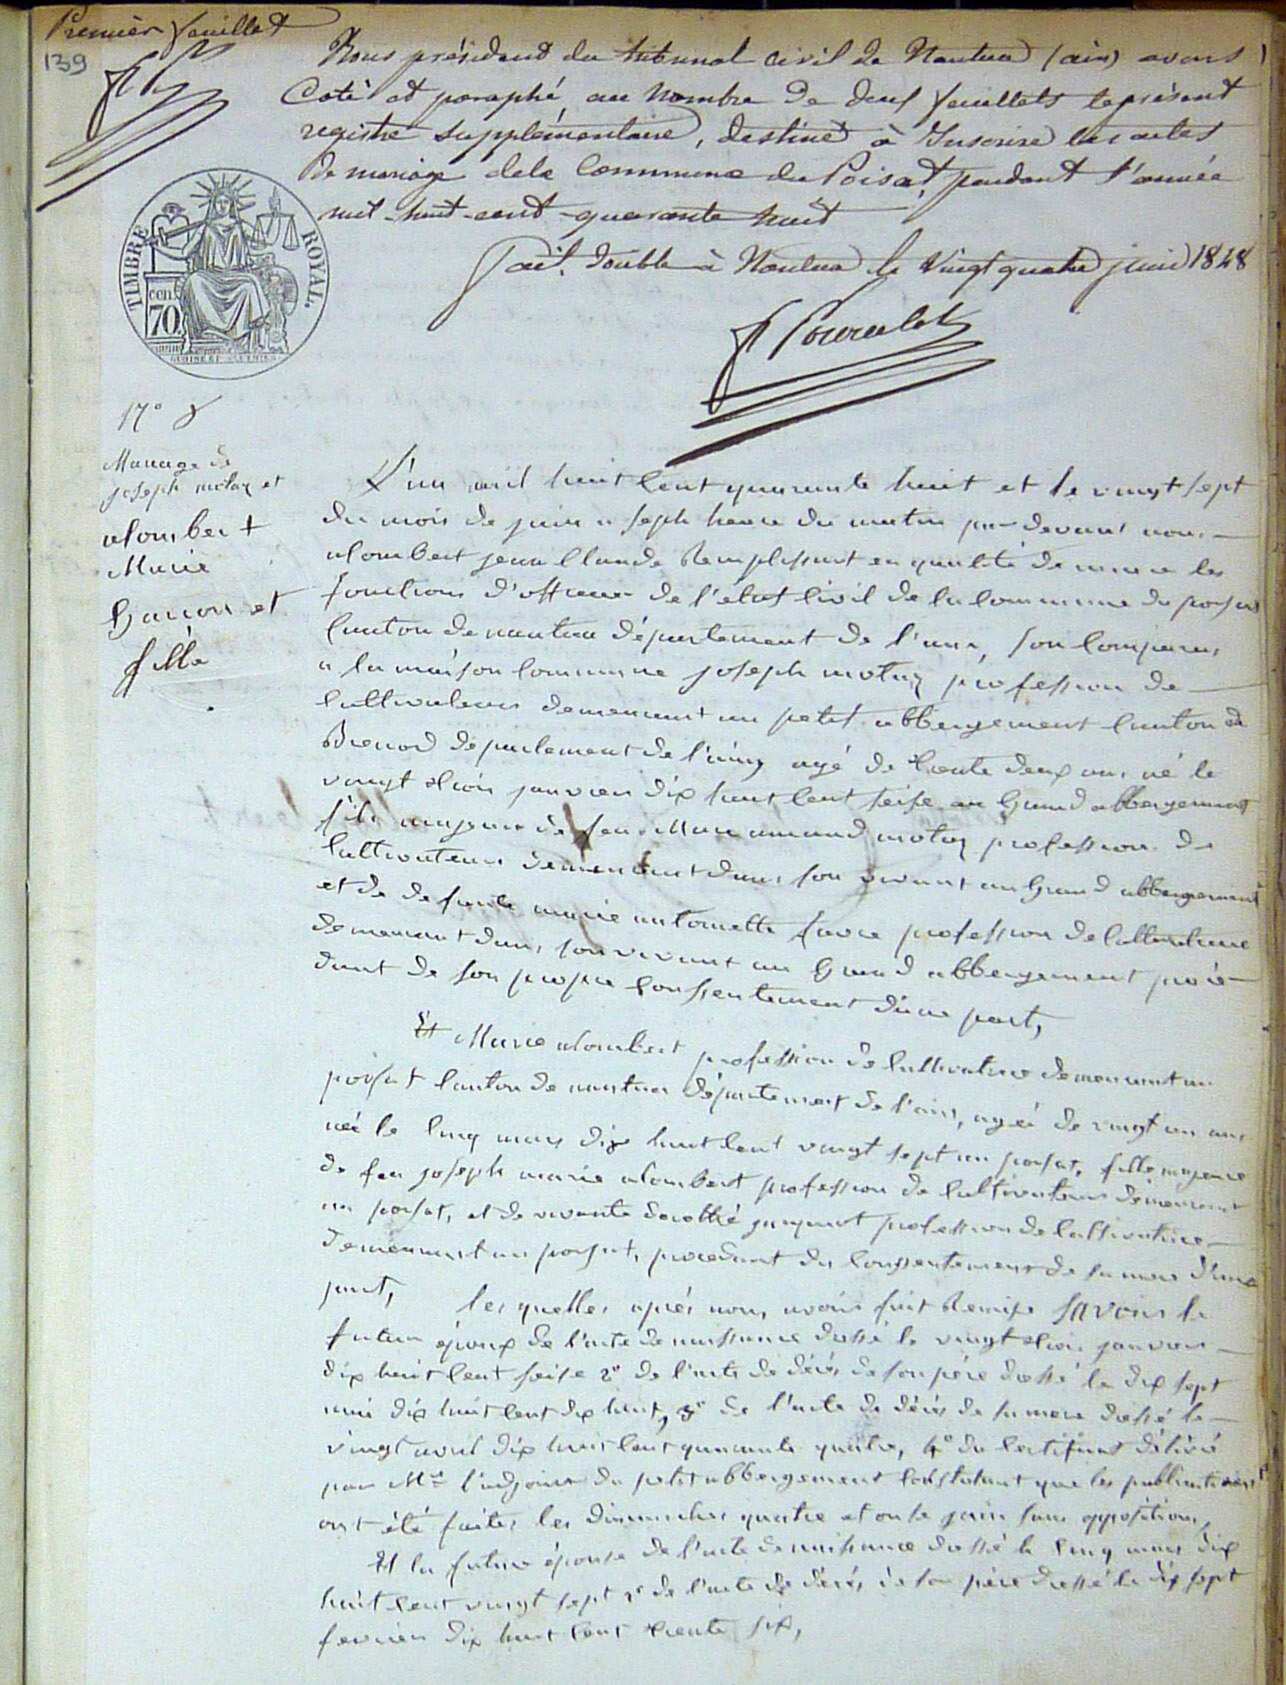 Premier feuillet
139
Nous président du tribunal civil de Nantua (ain) avons
Coté et paraphé, au Nombre de deux feuillets le présent
registre supplémentaire, destiné à Inscrire les actes
de mariage dela Commune du Poizat pendant l'année
mil-huit-cent-quarante huit
fait double à Nantua le Vingt quatre juin 1848
TIMBRE ROYAL.
cen.
70
N° 8
Mariage de
joseph molaz et
alombert
Marie
Garcon et
fille
L'an mil huit Cent quarante huit et le vingt sept
du mois de juin a seph heure du matin par devant nous
alombert jean Claude Remplissant en qualité de maire les
fonctions d'officier de l'etat Civil de la Commune du poisat
Canton de nantua département de l'ain, son Comparus
a la maison Commune joseph molaz profession de
Cultivateur demeurant au petit abbergement Canton de
Brenod département de l'ain, agé de trente deux ans né le
vingt trois janvier dix huit Cent seise au Grand abbergement
fils majeur de feu Marc amand molaz profession de
Cultivateur demeurant dans son vivant au Grand abbergement
et de defunte marie antoinette favre profession de Cultivatrice
demeurant dans son vivant au Grand abbergement procé-
dant de son propre Consentement d'une part,
Et Marie alombert profession de Cultivatrice demeurant au
poisat Canton de nantua département de l'ain, agée de vingt un ans
née le Cinq mars dix huit Cent vingt sept au poisat, fille majeure
de feu joseph marie alombert profession de Cultivateur demeurant
au poisat, et de vivante dorothé profession de Cultivatrice
demeurant au poisat, procedant du Consentement de sa mere d'une
part, les quelles après nous avoir fait Remise SAVOIR le
futur époux de l'acte de naissance dressé le vingt trois janvier
dix huit Cent seise 2° de l'acte de décés de son pére dressé le dix sept
mai dix huit Cent dix huit, 3° de l'acte de décés de sa mere dressé le
vingt avril dix huit Cent quarante quatre, 4° du Certificat délivré
par Mr l'adjoint du petit abbergement Constatant que les publications
ont été faites les dimanches quatre et onse juin sans opposition,
Et la future épouse de l'acte de naissance dressé le Cinq mars dix
huit Cent vingt sept 2° de l'acte de décés de son pére dressé le dix sept
fevrier dix huit Cent trente six,